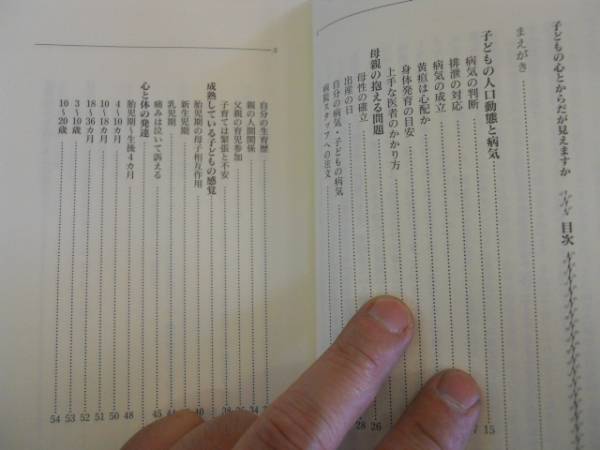 子どもの心とからだが見えますか 目次
まえがき
子どもの人口動態と病気 15
病気の判断
排泄の対応
病気の成立
黄疸は心配か
身体発育の目安
上手な医者のかかり方
母親の抱える問題 26
母性の確立 28
出産の日
自分の病気・子どもの病気
病院スタッフへの注文
自分の生育歴
親の人間関係 34
父親の育児参加
子育ては緊張と不安
成熟している子どもの感覚
胎児期の母子相互作用 40
新生児期
乳児期 44
痛みは泣いて訴える 45
心と体の発達
胎児期～生後4カ月 48
4～10カ月 50
10～18カ月 51
18～36カ月 52
3～10歳 53
10～20歳 54